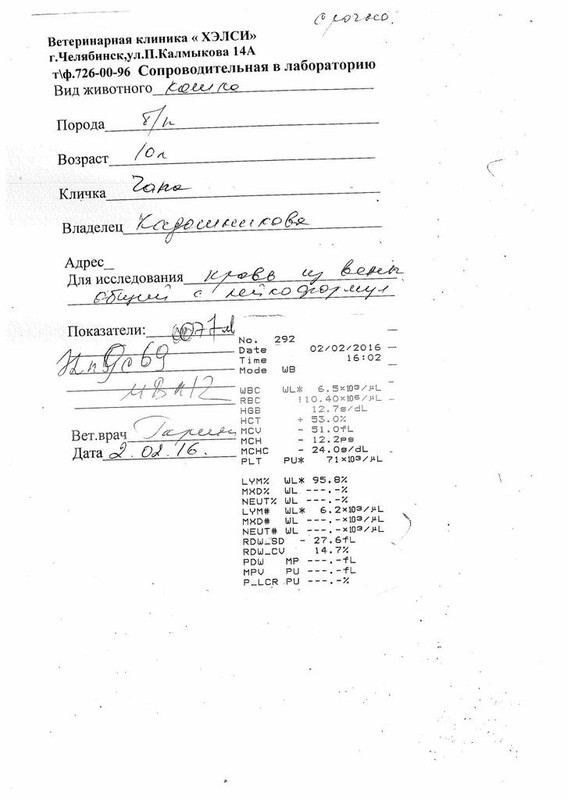 срочно.
Ветеринарная клиника « ХЭЛСИ»
г.Челябинск,ул.П.Калмыкова 14А
т\ф.726-00-96 Сопроводительная в лабораторию
Вид животного кошка
Порода б/п
Возраст 10л
Кличка
Владелец
Адрес_
Для исследования кровь из вены
общий с лейкоформул
Показатели:
Вет.врач
Дата 2.02.16.
No. 292
Date 02/02/2016
Time 16:02
Mode WB
WBC WL* 6.5×10³/µL
RBC 110.40×10⁶/µL
HGB 12.7g/dL
HCT + 53.0%
MCV - 51.0fL
MCH - 12.2pg
MCHC - 24.0g/dL
PLT PU* 71×10³/µL
LYM% WL* 95.8%
MXD% WL ---.-%
NEUT% WL ---.-%
LYM# WL* 6.2×10³/µL
MXD# WL ---.-×10³/µL
NEUT# WL ---.-×10³/µL
RDW_SD - 27.6fL
RDW_CV 14.7%
PDW MP ---.-fL
MPV PU ---.-fL
P_LCR PU ---.-%